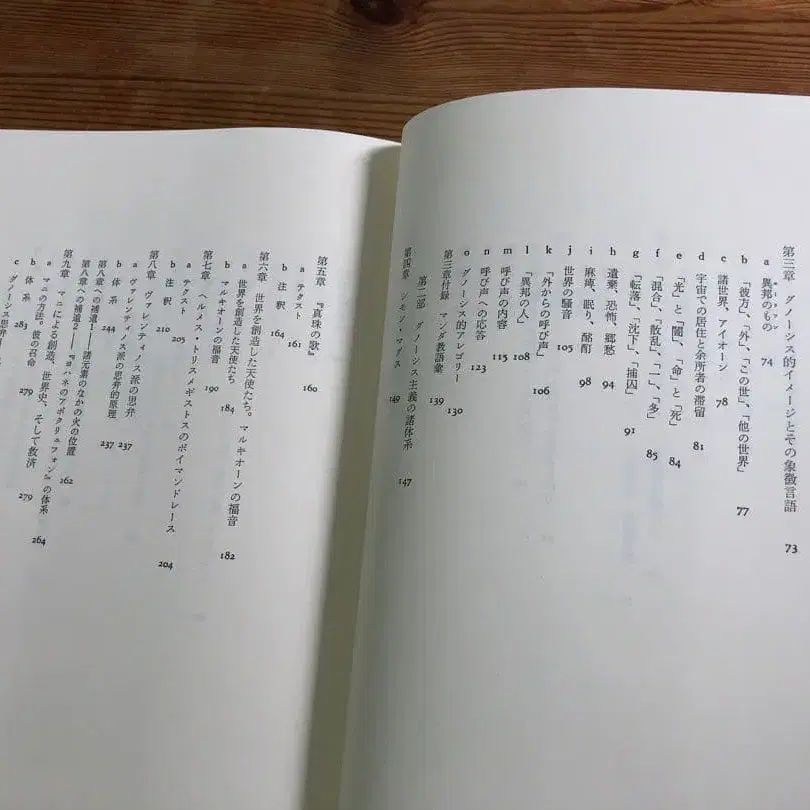 第三章 グノーシス的イメージとその象徴言語 73
a 異邦のもの 74
b 「彼方」、「外」、「この世」、「他の世界」 77
c 諸世界、アイオーン 78
d 宇宙での居住と余所者の滞留 81
e 「光」と「闇」、「命」と「死」 84
f 「混合」、「散乱」、「一」、「多」 85
g 「転落」、「沈下」、「捕囚」 91
h 遺棄、恐怖、郷愁 94
i 麻痺、眠り、酩酊 98
j 世界の騒音 105
k 「外からの呼び声」 106
l 「異邦の人」 108
m 呼び声の内容 115
n 呼び声への応答 123
o グノーシス的アレゴリー 130
第三章付録 マンダ教語彙 139
第二部 グノーシス主義の諸体系 147
第四章 シモン・マグス 149
第五章 『真珠の歌』 160
a テクスト 161
b 注釈 164
第六章 世界を創造した天使たち。マルキオーンの福音 182
a 世界を創造した天使たち 184
b マルキオーンの福音 190
第七章 ヘルメス・トリスメギストスのポイマンドレース 204
a テクスト 205
b 注釈 210
第八章 ヴァレンティノス派の思弁 237
a ヴァレンティノス派の思弁的原理 237
b 体系 244
第八章への補遺1——諸元素のなかの火の位置 262
第八章への補遺2——『ヨハネのアポクリュフォン』の体系 264
第九章 マニによる創造、世界史、そして救済 279
a マニの方法。彼の召命 279
b 体系 283
c グノーシス思弁